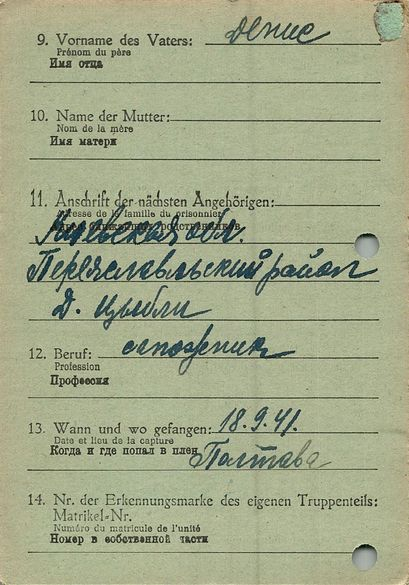 9. Vorname des Vaters: Денис
Prénom du père
Имя отца
10. Name der Mutter:
Nom de la mère
Имя матери
11. Anschrift der nächsten Angehörigen:
Adresse de la famille du prisonnier
Адрес ближайших родственников
Киевская обл.
Переяславльский район
д. Цыбли
12. Beruf: сапожник
Profession
Профессия
13. Wann und wo gefangen: 18.9.41.
Date et lieu de la capture
Когда и где попал в плен Полтава
14. Nr. der Erkennungsmarke des eigenen Truppenteils:
Matrikel-Nr.
Numéro du matricule de l'unité
Номер в собственной части